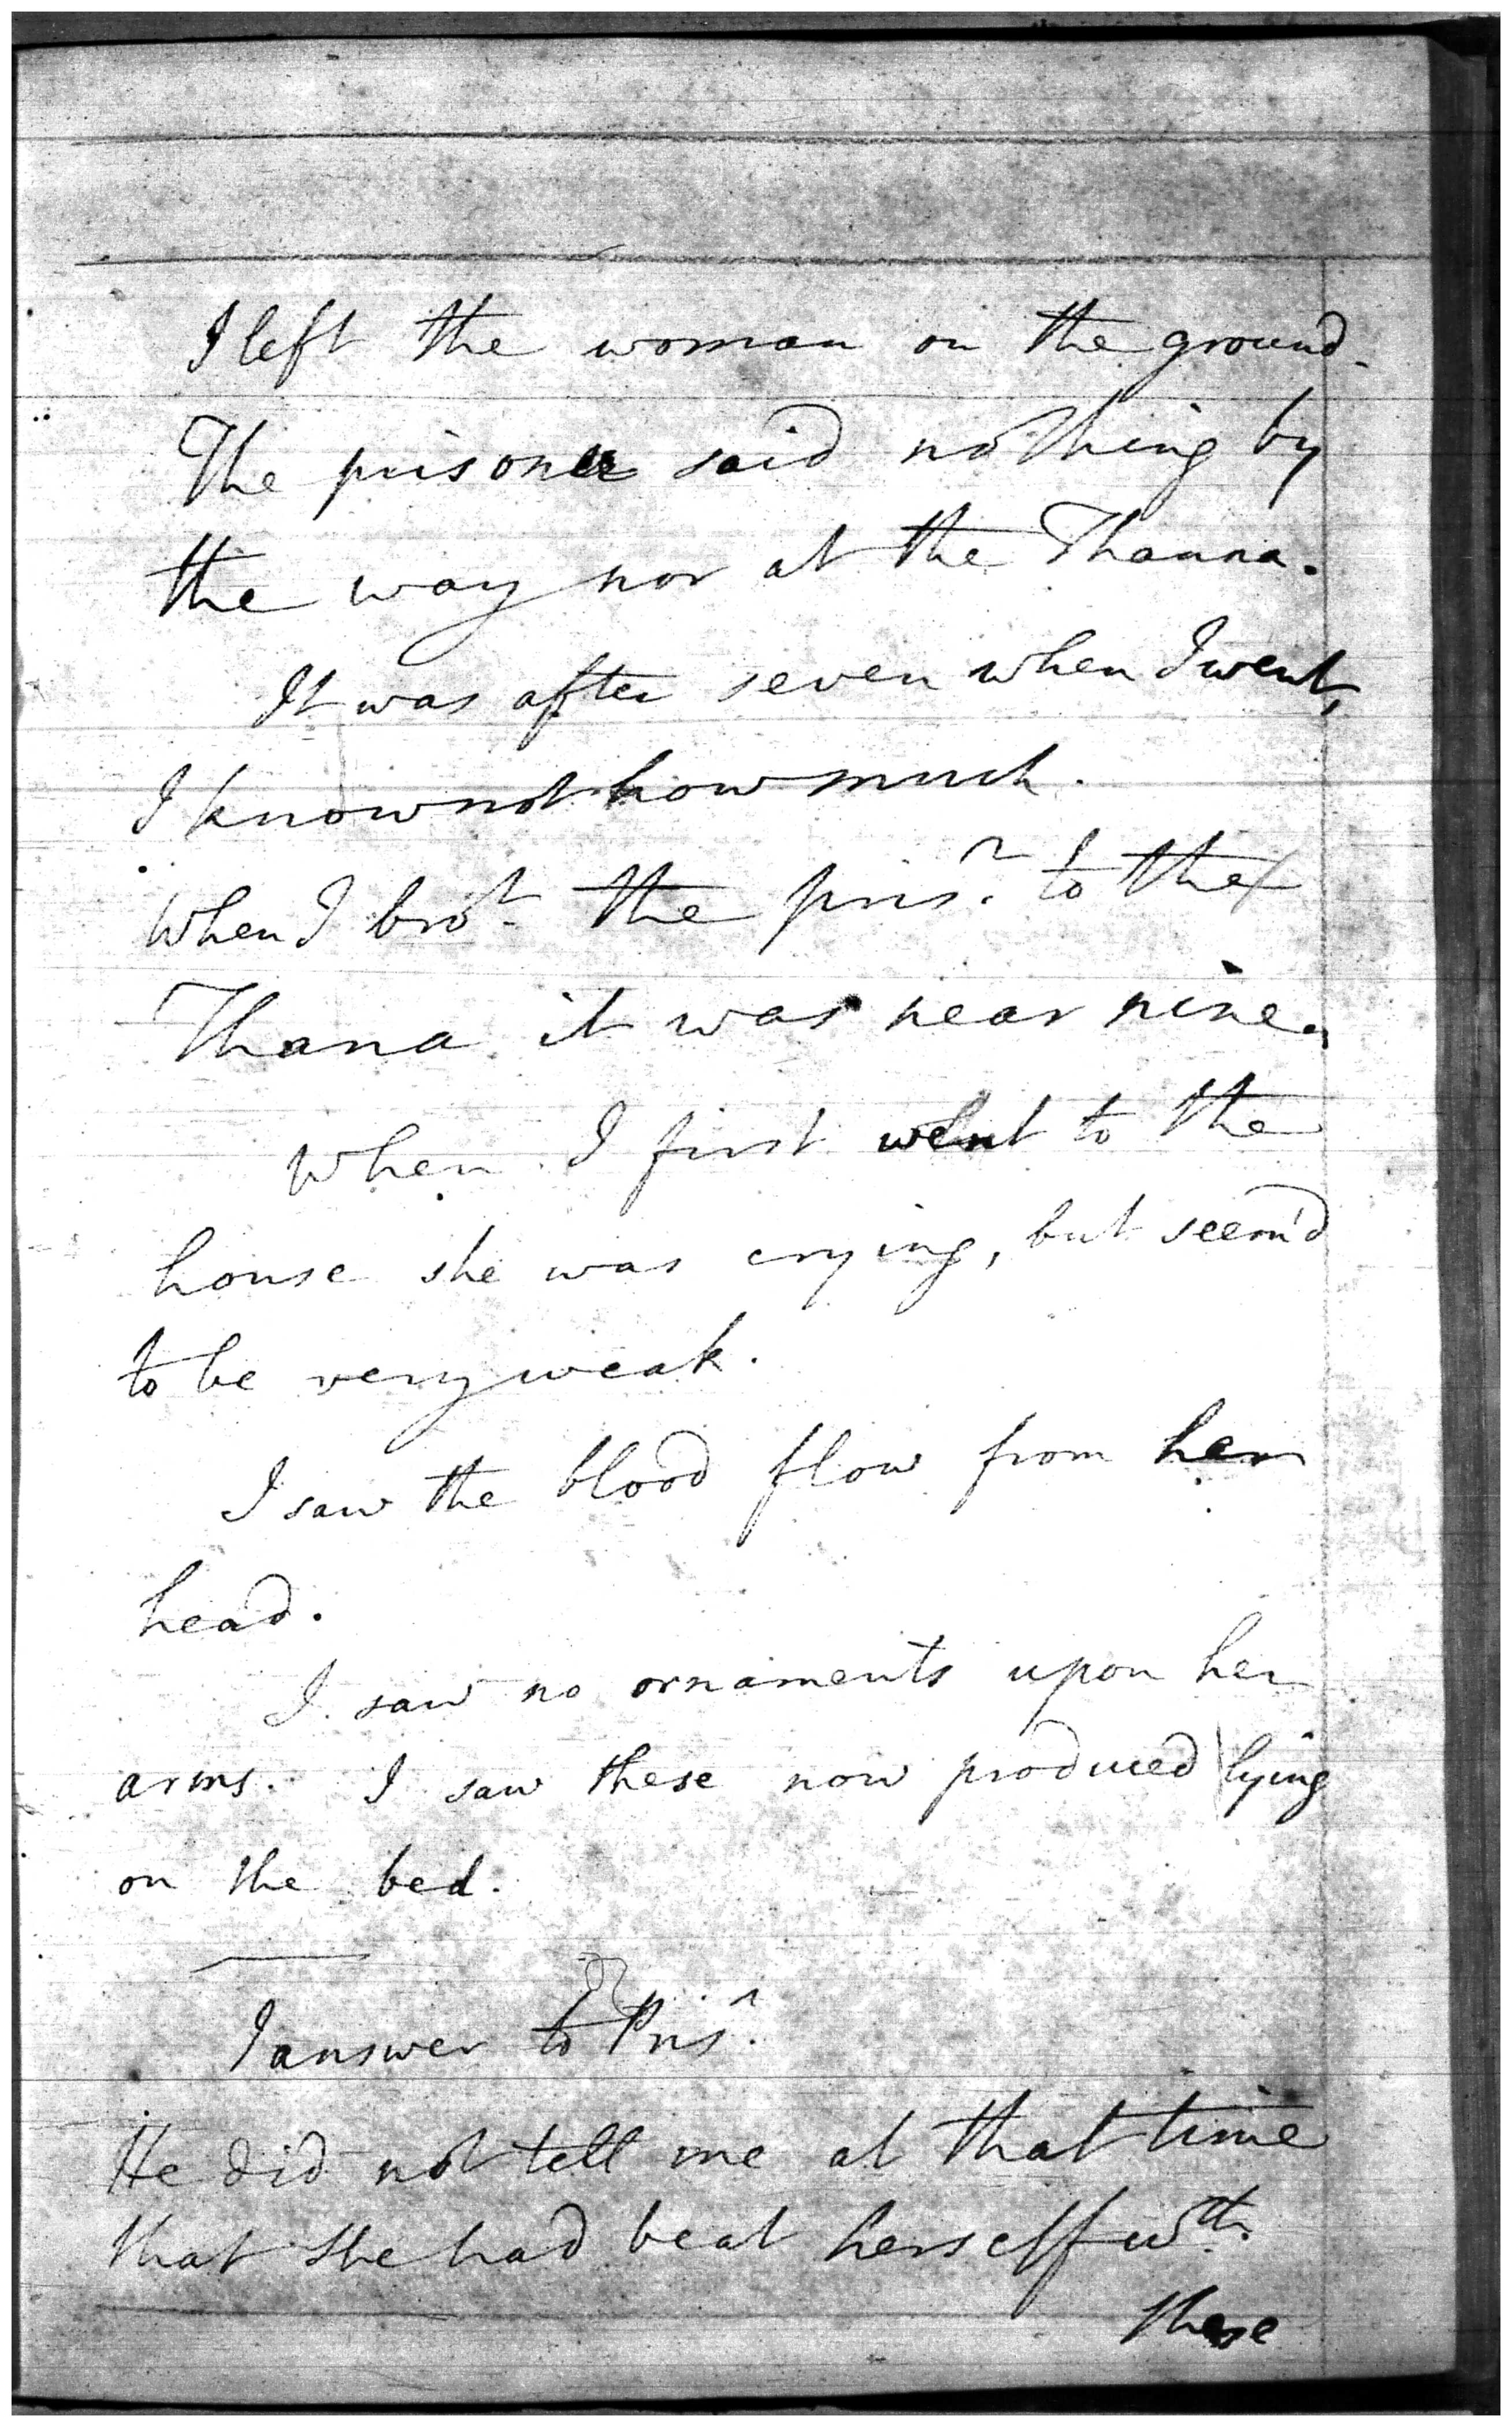 I left the woman on the ground.
The prisoner said nothing by
the way nor at the Thanna.
It was after seven when I went,
I know not how much.
When I bro.t the pris.r to the
Thana it was near nine.
When I first went to the
house she was crying, but seem'd
to be very weak.
I saw the blood flow from her
head.
I saw no ornaments upon her
arms. I saw these now produced lying
on the bed.
I answer to Pris.r
He did not tell me at that time
that she had beat herself w.th
these